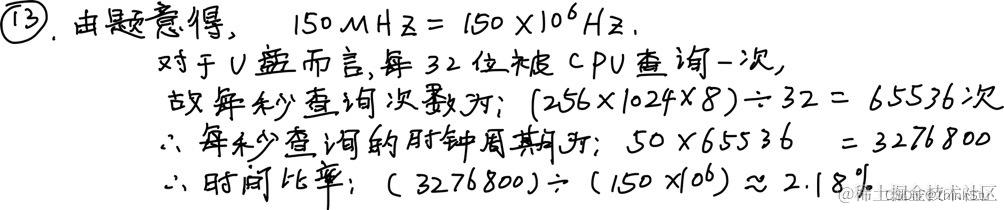 ⑬. 由题意得, 150MHz = 150×10⁶Hz.
对于U盘而言, 每32位被CPU查询一次,
故每秒查询次数为: (256×1024×8)÷32 = 65536次
∴ 每秒查询的时钟周期为: 50×65536 = 3276800
∴ 时间比率: (3276800)÷(150×10⁶) ≈ 2.18%
@稀土掘金技术社区